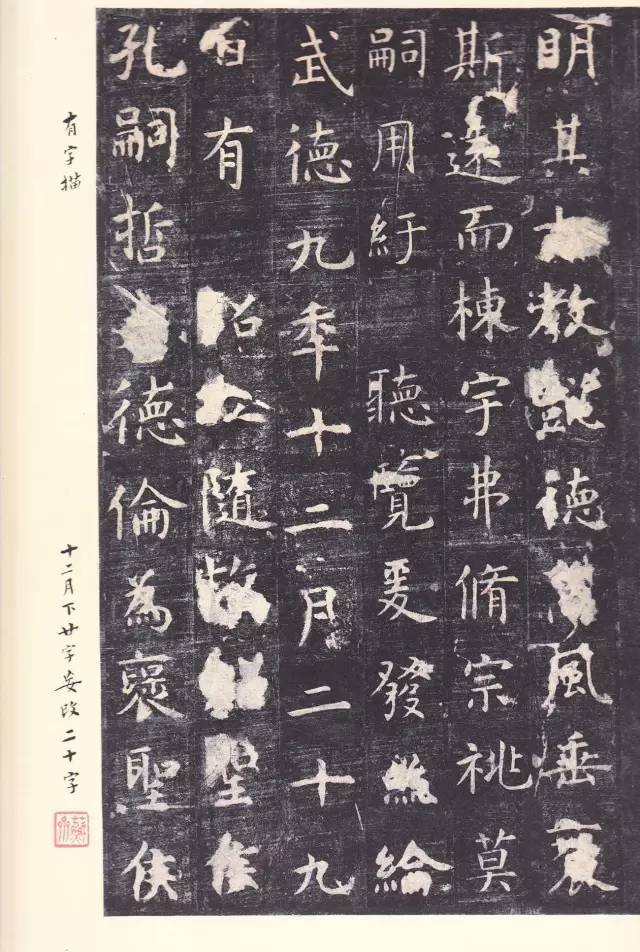 明其大教懿德風垂
斯遠而棟宇弗脩宗祧莫
嗣用紆聽覽爰發絲綸
武德九年十二月二十九
日有詔立隨故紹聖侯
孔嗣哲子德倫為褒聖侯
有字描
十二月下廿字妄改二十字